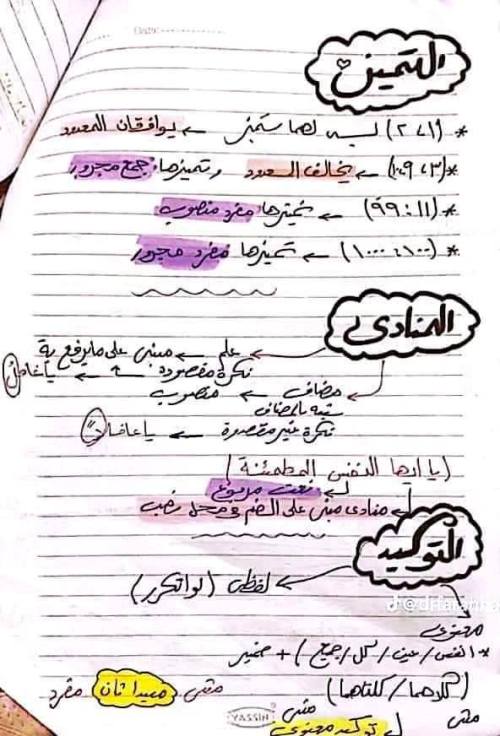 Date:
التمييز
* (١، ٢) ليس لهما تمييز ← يوافقان المعدود
* (٣، ١٠،٩) ← يخالف المعدود وتمييزها جمع مجرور
* (١١ : ٩٩) ← تمييزها مفرد منصوب
* (١٠٠ : ١٠٠٠) ← تمييزها مفرد مجرور
المنادى
علم ← مبنى على ما يرفع به
نكرة مقصودة ← يا غافلُ
مضاف ← منصوب
شبه بالمضاف
نكرة غير مقصودة ← يا غافلاً
(يا ايها النفس المطمئنة)
نعت مرفوع
منادى مبنى على الضم فى محل نصب
التوكيد
لفظى (لو اتكرر)
معنوى
* النفس / عين / كل / جميع) + ضمير
(كلاهما / كلتاهما)
مثنى مبتدا ثان مفرد
مثنى توكيد معنوى
مثنى
YASSIN